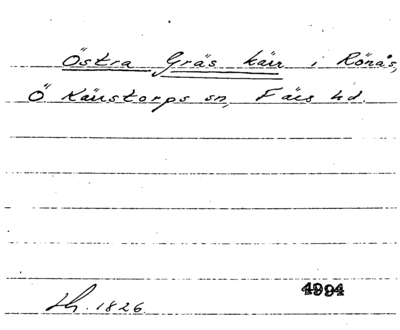 Östra Gräs kärr i Rönås,
Ö Kärrstorps sn, Färs hd.
Lh. 1826.
4994